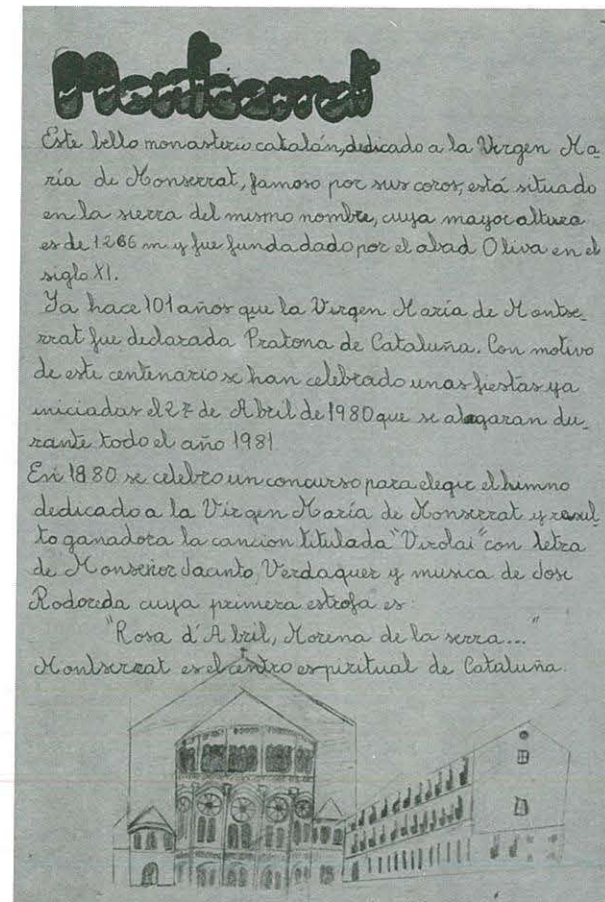 Montserrat
Este bello monasterio catalán, dedicado a la Virgen Ma-
ría de Monserrat, famoso por sus coros, está situado
en la sierra del mismo nombre, cuya mayor altura
es de 1266 m y fue fundadado por el abad Oliva en el
siglo XI.
Ya hace 101 años que la Virgen María de Montse-
rrat fue declarada Pratona de Cataluña. Con motivo
de este centenario se han celebrado unas fiestas ya
iniciadas el 27 de Abril de 1980 que se alagaran du-
rante todo el año 1981
En 1880 se celebro un concurso para elegir el himno
dedicado a la Virgen María de Monserrat y resul-
to ganadora la cancion titulada "Virolai" con letra
de Monseñor Jacinto Verdaguer y musica de Jose
Rodoreda cuya primera estrofa es:
"Rosa d'Abril, Morena de la serra..."
Montserrat es el centro espiritual de Cataluña.